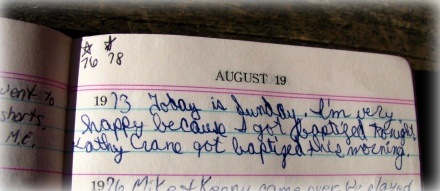 76 78
AUGUST 19
went to
shorts.
M.E.
1973 Today is Sunday. I'm very
happy because I got baptized tonight.
Kathy Crane got baptized this morning.
1976 Mike & Kenny came over. We played